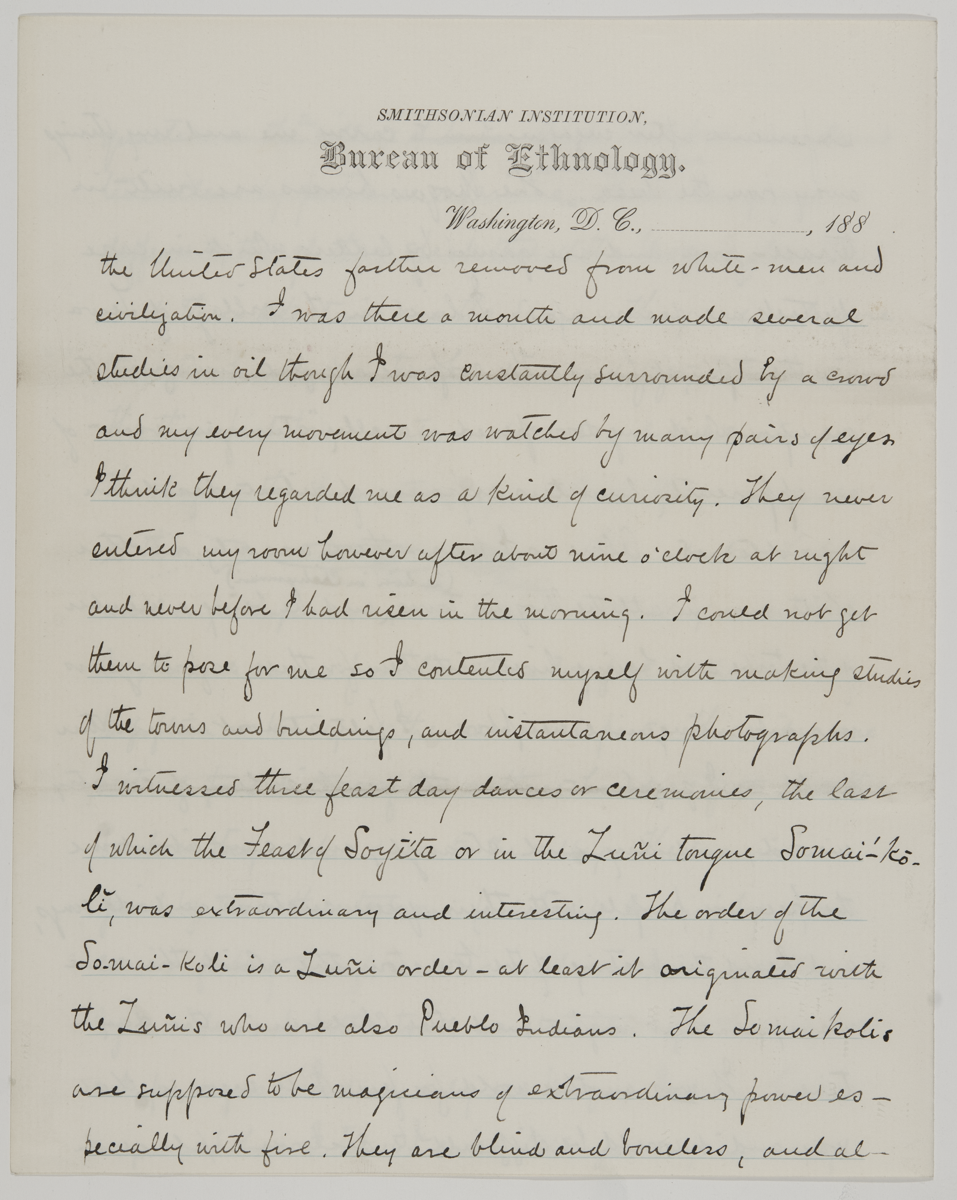 SMITHSONIAN INSTITUTION,
Bureau of Ethnology.
Washington, D. C., , 188 .
the United States farther removed from white-men and
civilization. I was there a month and made several
studies in oil though I was constantly surrounded by a crowd
and my every movement was watched by many pairs of eyes
I think they regarded me as a kind of curiosity. They never
entered my room however after about nine o'clock at night
and never before I had risen in the morning. I could not get
them to pose for me so I contented myself with making studies
of the towns and buildings, and instantaneous photographs.
I witnessed three feast day dances or ceremonies, the last
of which the Feast of Soyíta or in the Zuñi tongue Somai'-kō-
lĭ, was extraordinary and interesting. The order of the
So-mai-koli is a Zuñi order - at least it originated with
the Zuñis who are also Pueblo Indians. The Somaikolis
are supposed to be magicians of extraordinary power es-
pecially with fire. They are blind and boneless, and al-